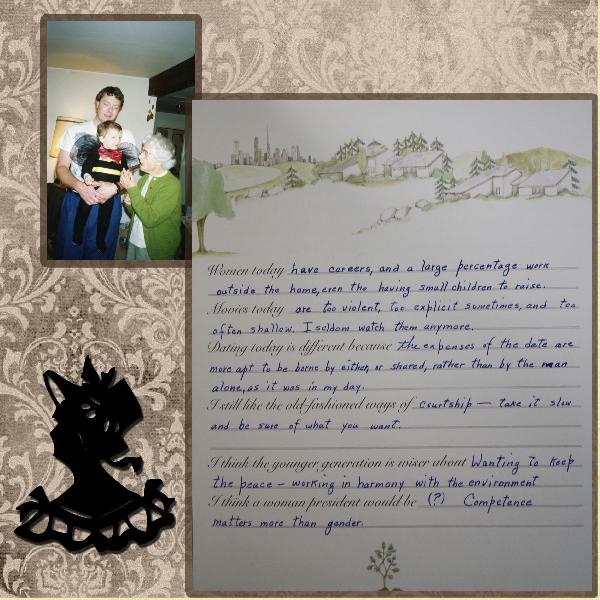 Women today have careers, and a large percentage work
outside the home, even tho having small children to raise.
Movies today are too violent, too explicit sometimes, and too
often shallow. I seldom watch them anymore.
Dating today is different because the expenses of the date are
more apt to be borne by either, or shared, rather than by the man
alone, as it was in my day.
I still like the old-fashioned ways of courtship — take it slow
and be sure of what you want.
I think the younger generation is wiser about Wanting to keep
the peace — working in harmony with the environment
I think a woman president would be (?) Competence
matters more than gender.